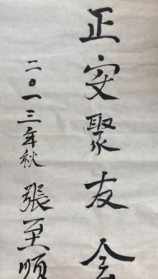 正安聚友会
二〇一三年秋 張至順